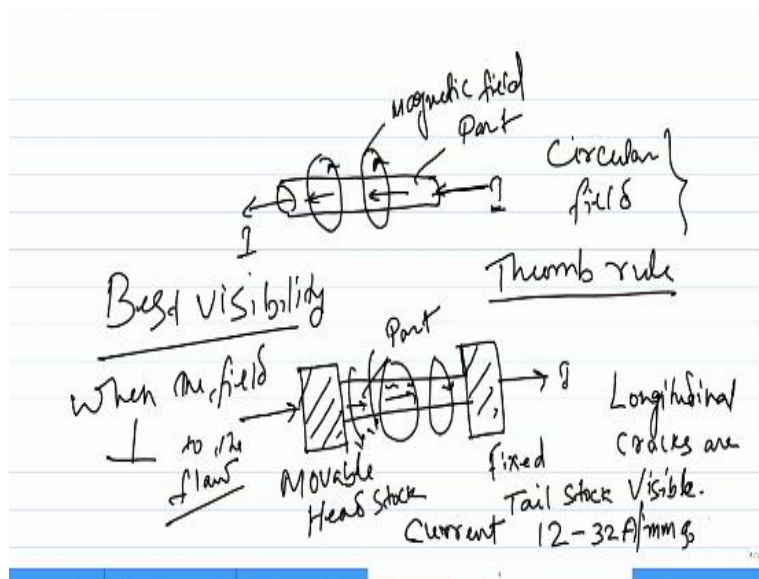 Magnetic field
Part
Circular
field
I
I
Thumb rule
Best visibility
Part
When the field
⊥ to the
flaw
I
Longitudinal
Cracks are
Visible.
Movable
Head Stock
Fixed
Tail Stock
Current 12-32A/mm